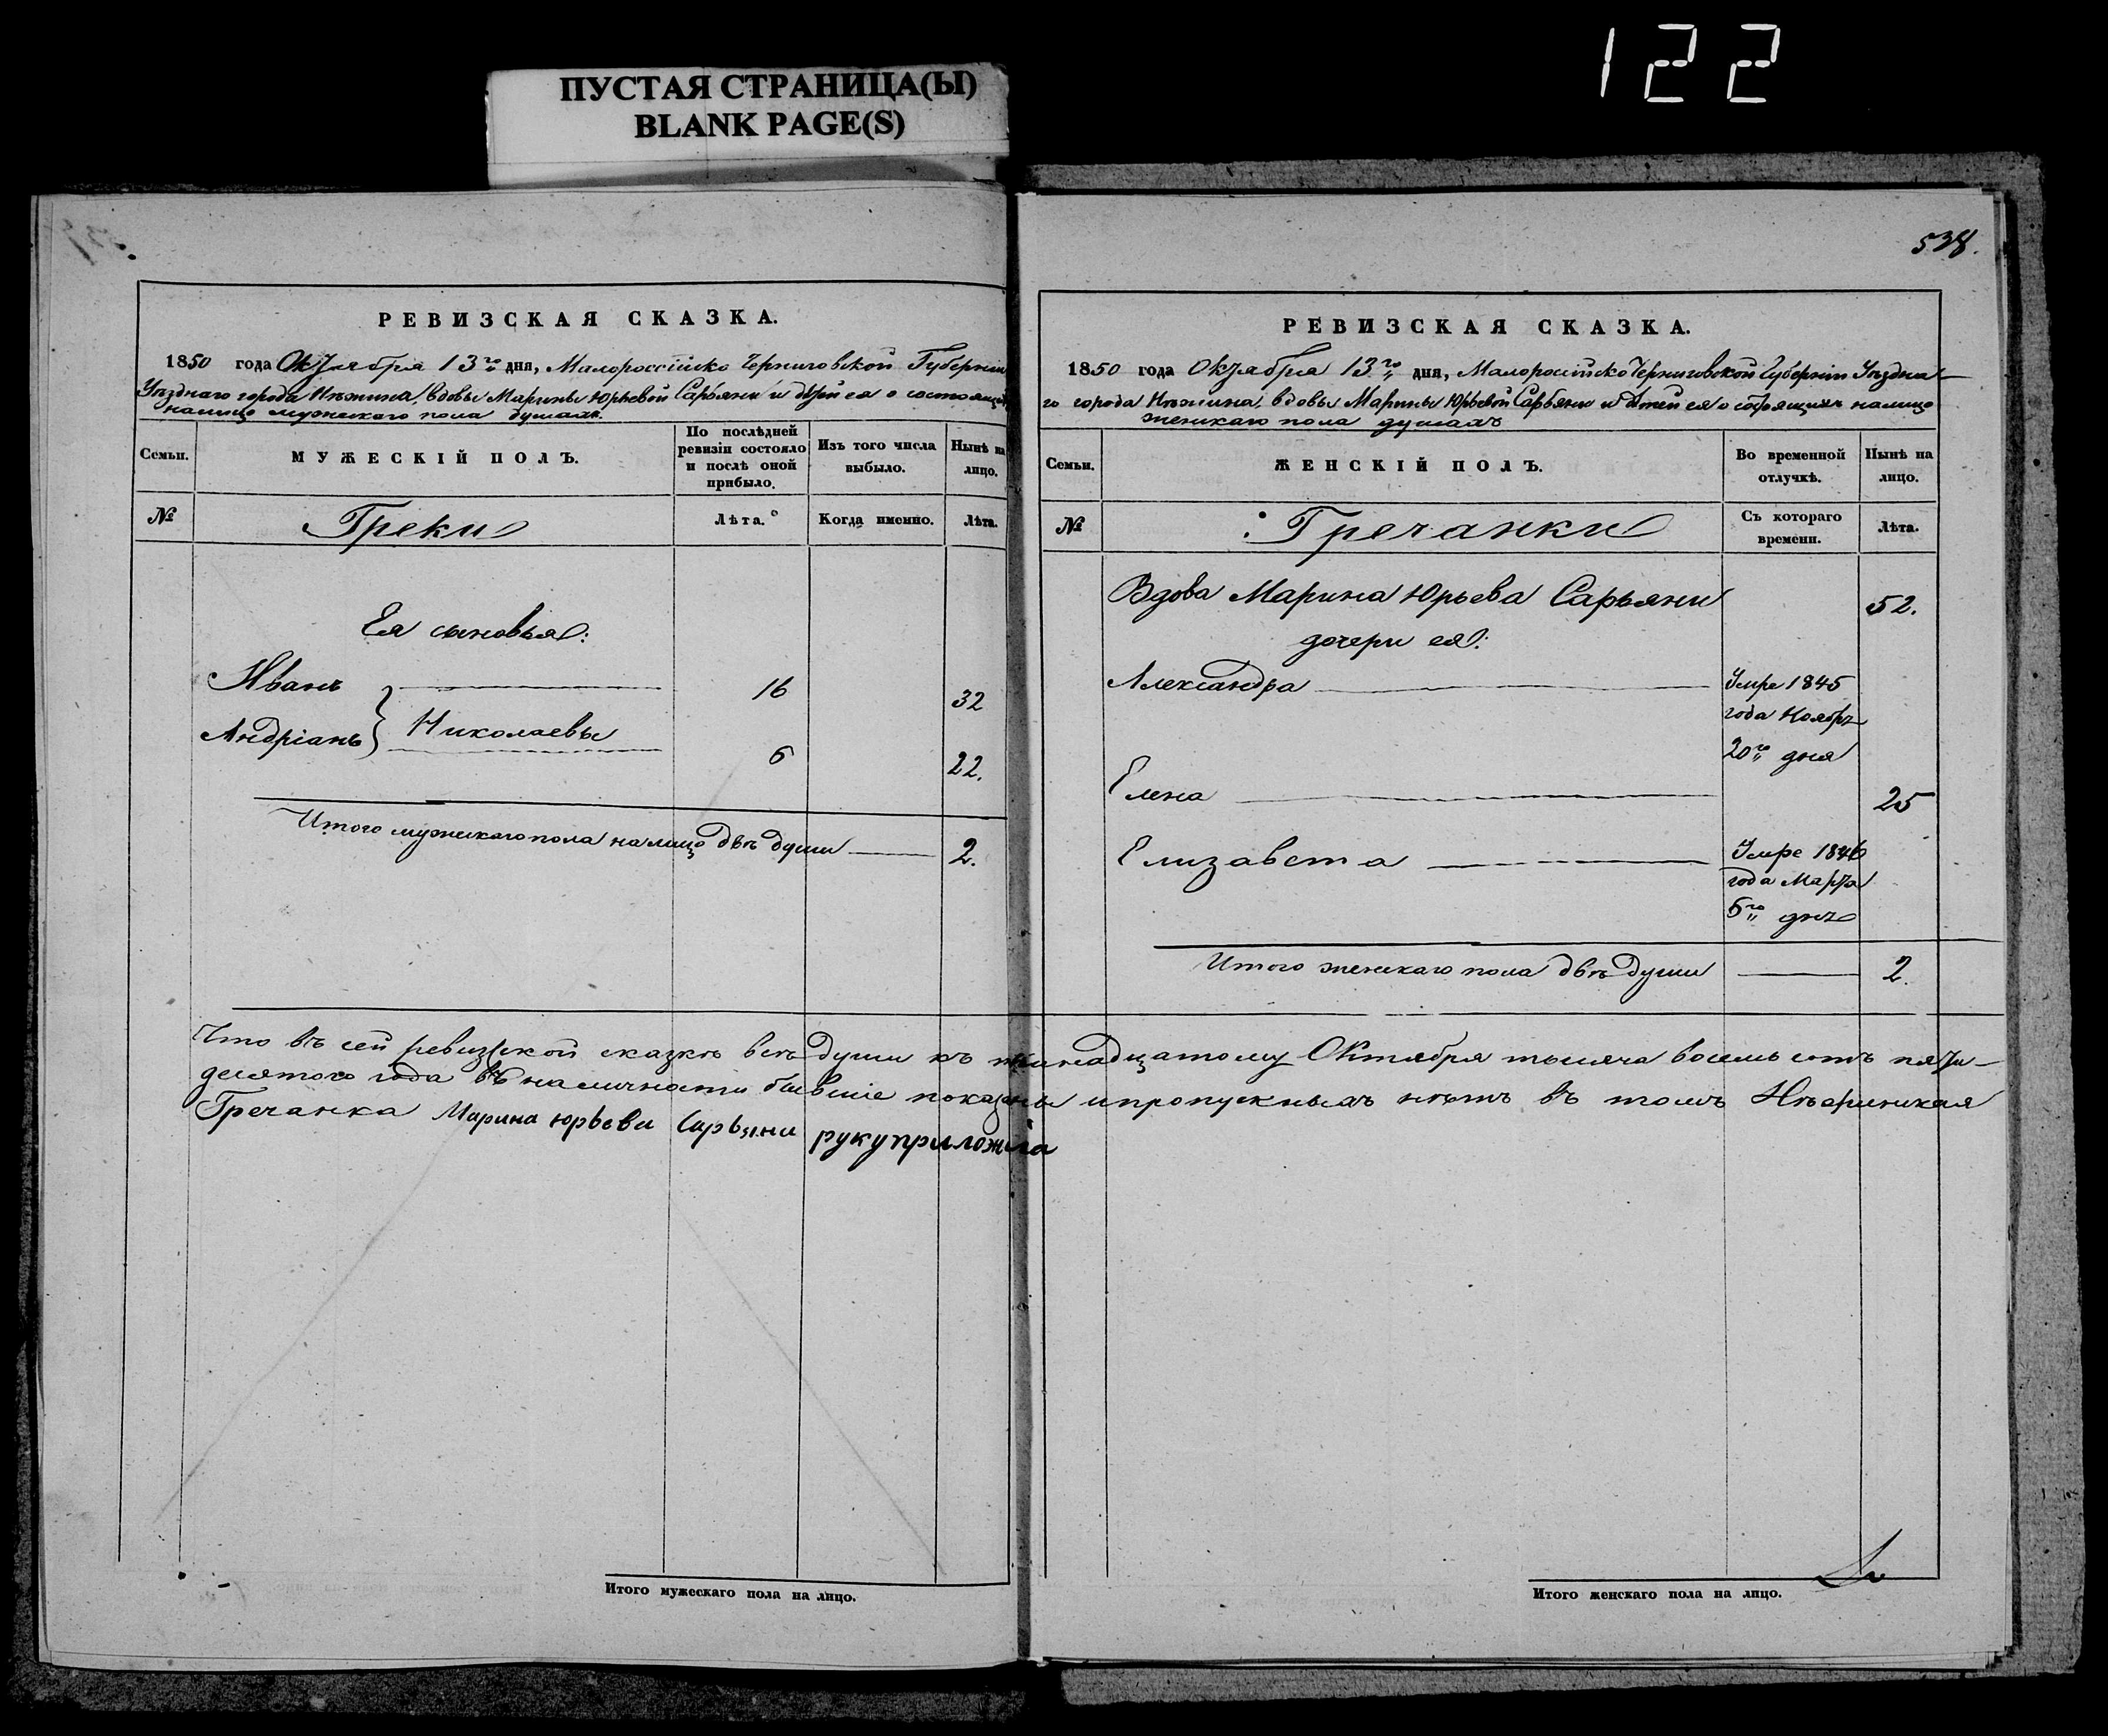 122
ПУСТАЯ СТРАНИЦА(Ы)
BLANK PAGE(S)
РЕВИЗСКАЯ СКАЗКА.
1850 года Октября 13го дня, Малороссійско Черниговской Губерніи
Уѣзднаго города Нѣжина, вдовы Марины Юрьевой Сарьяни и дѣтей ея о состоящихъ
налицо мужескаго пола душахъ.
Семьи.
МУЖЕСКІЙ ПОЛЪ.
По послѣдней ревизіи состояло и послѣ оной прибыло.
Изъ того числа выбыло.
Нынѣ на лицо.
№
Греки
Лѣта.
Когда именно.
Лѣта.
Ея сыновья:
Иванъ 16 32
Андріанъ } Николаевы 6 22.
Итого мужескаго пола налицо двѣ души 2.
538.
РЕВИЗСКАЯ СКАЗКА.
1850 года Октября 13го дня, Малоросійско Черниговской Губерніи Уѣздна-
го города Нѣжина, вдовы Марины Юрьевой Сарьяни и дѣтей ея о состоящихъ налицо
женскаго пола душахъ
Семьи.
ЖЕНСКІЙ ПОЛЪ.
Во временной отлучкѣ.
Нынѣ на лицо.
№
Гречанки
Съ котораго времени.
Лѣта.
Вдова Марина Юрьева Сарьяни 52.
дочери ея:
Александра Умре 1845
года Ноября
20го дня
Елена 25
Елизавета Умре 1846
года Марта
6го дня
Итого женскаго пола двѣ души 2.
Что въ сей ревизской сказкѣ всѣ души къ тринадцатому Октября тысяча восемь сотъ пяти-
десятого года въ наличности бывшіе показаны и пропускныхъ нѣтъ въ томъ Нѣжинская
Гречанка Марина Юрьева Сарьяни руку приложила
Итого мужескаго пола на лицо.
Итого женскаго пола на лицо.